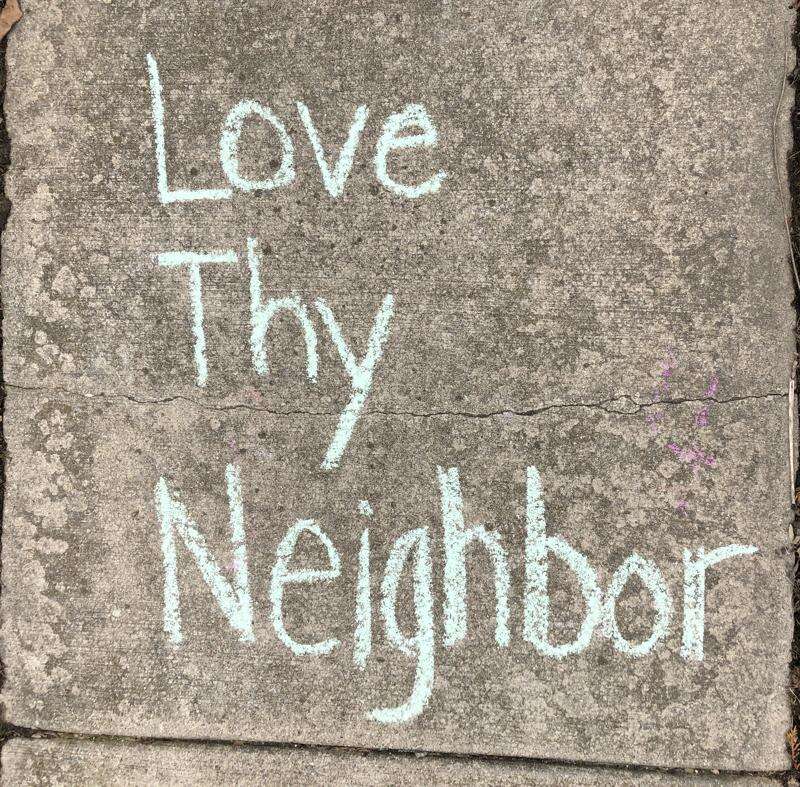 Love
Thy
Neighbor